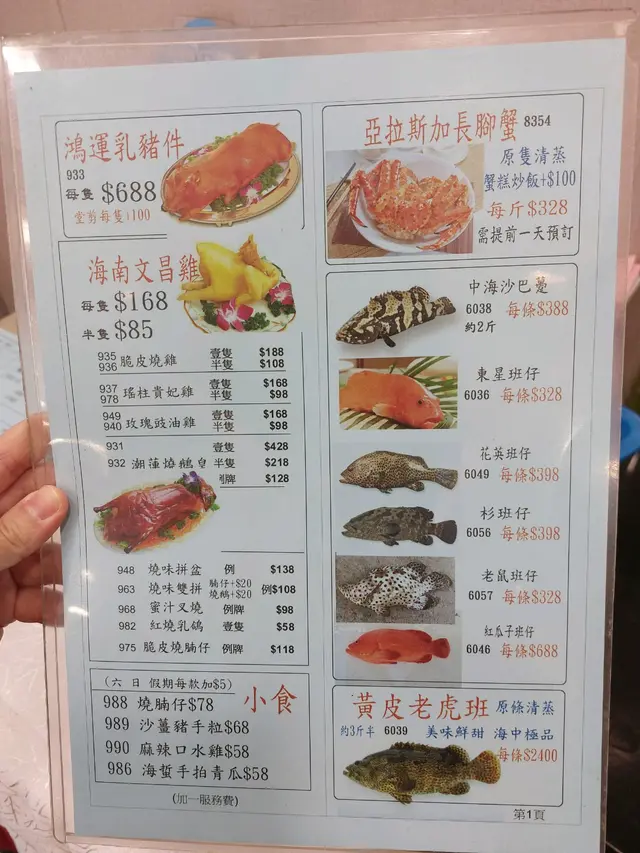 鴻運乳豬件
933
每隻 $688
堂剪每隻:100
海南文昌雞
每隻 $168
半隻 $85
935 脆皮燒雞 壹隻 $188
936 半隻 $108
937 瑤柱貴妃雞 壹隻 $168
978 半隻 $98
949 玫瑰豉油雞 壹隻 $168
940 半隻 $98
931 壹隻 $428
932 潮蓮燒鵝皇 半隻 $218
例牌 $128
948 燒味拼盆 例 $138
963 燒味雙拼 腩仔+$20 燒鵝+$20 例$108
968 蜜汁叉燒 例牌 $98
982 紅燒乳鴿 壹隻 $58
975 脆皮燒腩仔 例牌 $118
(六 日 假期每款加$5)
小食
988 燒腩仔$78
989 沙薑豬手粒$68
990 麻辣口水雞$58
986 海蜇手拍青瓜$58
(加一服務費)
亞拉斯加長腳蟹 8354
原隻清蒸
蟹糕炒飯+$100
每斤$328
需提前一天預訂
中海沙巴躉
6038 每條$388
約2斤
東星班仔
6036 每條$328
花英班仔
6049 每條$398
杉班仔
6056 每條$398
老鼠班仔
6057 每條$328
紅瓜子班仔
6046 每條$688
黃皮老虎班 原條清蒸
約3斤半 6039 美味鮮甜 海中極品
每條$2400
第1頁